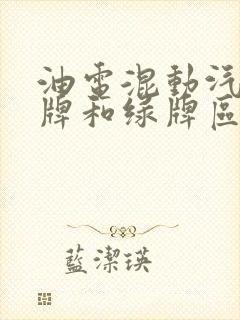 油電混動汽
牌和绿牌區
藍潔瑛